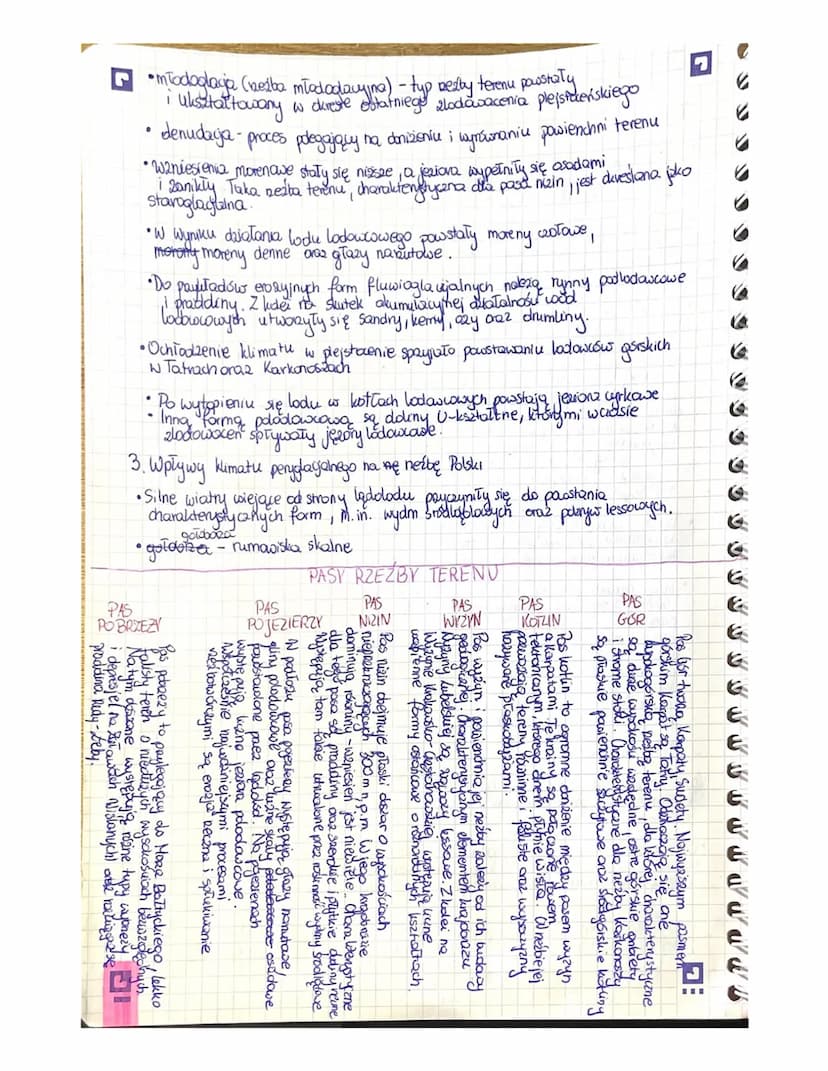 • młodoglacja (rzeźba młodoglacyjna) - typ rzeźby terenu powstały
i ukształtowany w okresie ostatniego zlodowacenia plejstoceńskiego
• denudacja - proces polegający na obniżeniu i wyrównaniu powierzchni terenu
• Wzniesienia morenowe stały się niższe, a jeziora wypełniły się osadami
i zanikły. Taka rzeźba terenu, charakterystyczna dla pasa nizin, jest określana jako
staroglacjalna.
• W wyniku działania lodu lodowcowego powstały moreny czołowe,
moreny denne oraz głazy narzutowe.
• Do przykładów erozyjnych form fluwioglacjalnych należą rynny podlodowcowe
i pradoliny. Z kolei na skutek akumulacyjnej działalności wód
lodowcowych utworzyły się sandry, kemy, ozy oraz drumliny.
• Ochłodzenie klimatu w plejstocenie sprzyjało powstawaniu lodowców górskich
w Tatrach oraz Karkonoszach
• Po wytopieniu się lodu w kotłach lodowcowych powstają jeziora cyrkowe
• Inną formą polodowcową są doliny U-kształtne, którymi w czasie
zlodowaceń spływały jęzory lodowcowe.
3. Wpływy klimatu peryglacjalnego na rzeźbę Polski
• Silne wiatry wiejące od strony lądolodu przyczyniły się do powstania
charakterystycznych form, m.in. wydm śródlądowych oraz pokryw lessowych.
• gołoborza - rumowiska skalne
PASY RZEŹBY TERENU
PAS
POBRZEŻY
Pas pobrzeży to przylegający do Morza Bałtyckiego, lekko
falisty teren o niewielkich wysokościach bezwzględnych
Na tym obszarze występują różne typy wybrzeży
i depresje na Żuławach Wiślanych oraz
pradolina Redy-Łeby.
PAS
POJEZIERZY
W pasłoku pasa pojezierzy występują głazy narzutowe,
gliny polodowcowe oraz luźne skały osadowe
pozostawione przez lądolód. Na pojezierzach
występują liczne jeziora polodowcowe.
Współcześnie najważniejszymi procesami
rzeźbotwórczymi są erozja rzeczna i spłukiwanie
PAS
NIZIN
Pas nizin obejmuje płaski obszar o wysokościach
nieprzekraczających 300m n.p.m. W jego krajobrazie
dominują równiny - wzniesień jest niewiele. Charakterystyczne
dla tego pasa są pradoliny oraz szerokie i płytkie doliny rzeczne
Występują tam także utrwalone przez roślinność wydmy śródlądowe
PAS
WYŻYN
Pas wyżyn i powierzchnia jej rzeźby zależą od ich budowy
geologicznej. Charakterystycznym elementem krajobrazu
Wyżyny Lubelskiej są wąwozy lessowe. Z kolei na
Wyżynie Krakowsko-Częstochowskiej występują liczne
wapienne formy ostańcowe o różnorodnych kształtach.
PAS
KOTLIN
Pas kotlin to ogromne obniżenie między pasem wyżyn
a Karpatami. Te krainy są połączone rowem
tektonicznym, którego dnem płynie Wisła. W rzeźbie jej
przeważają tereny równinne i faliste oraz wysoczyzny
nazywane płaskowyżami.
PAS
GÓR
Pas gór tworzą Karpaty i Sudety. Najwyższym pasmem
górskim Karpat są Tatry. Odznaczają się one
wysokogórską rzeźbą terenu, dla której charakterystyczne
są duże wysokości względne, ostre górskie grzbiety
i strome stoki. Charakterystyczne dla rzeźby Karkonoszy
są płaskie powierzchnie szczytowe oraz śródgórskie kotliny